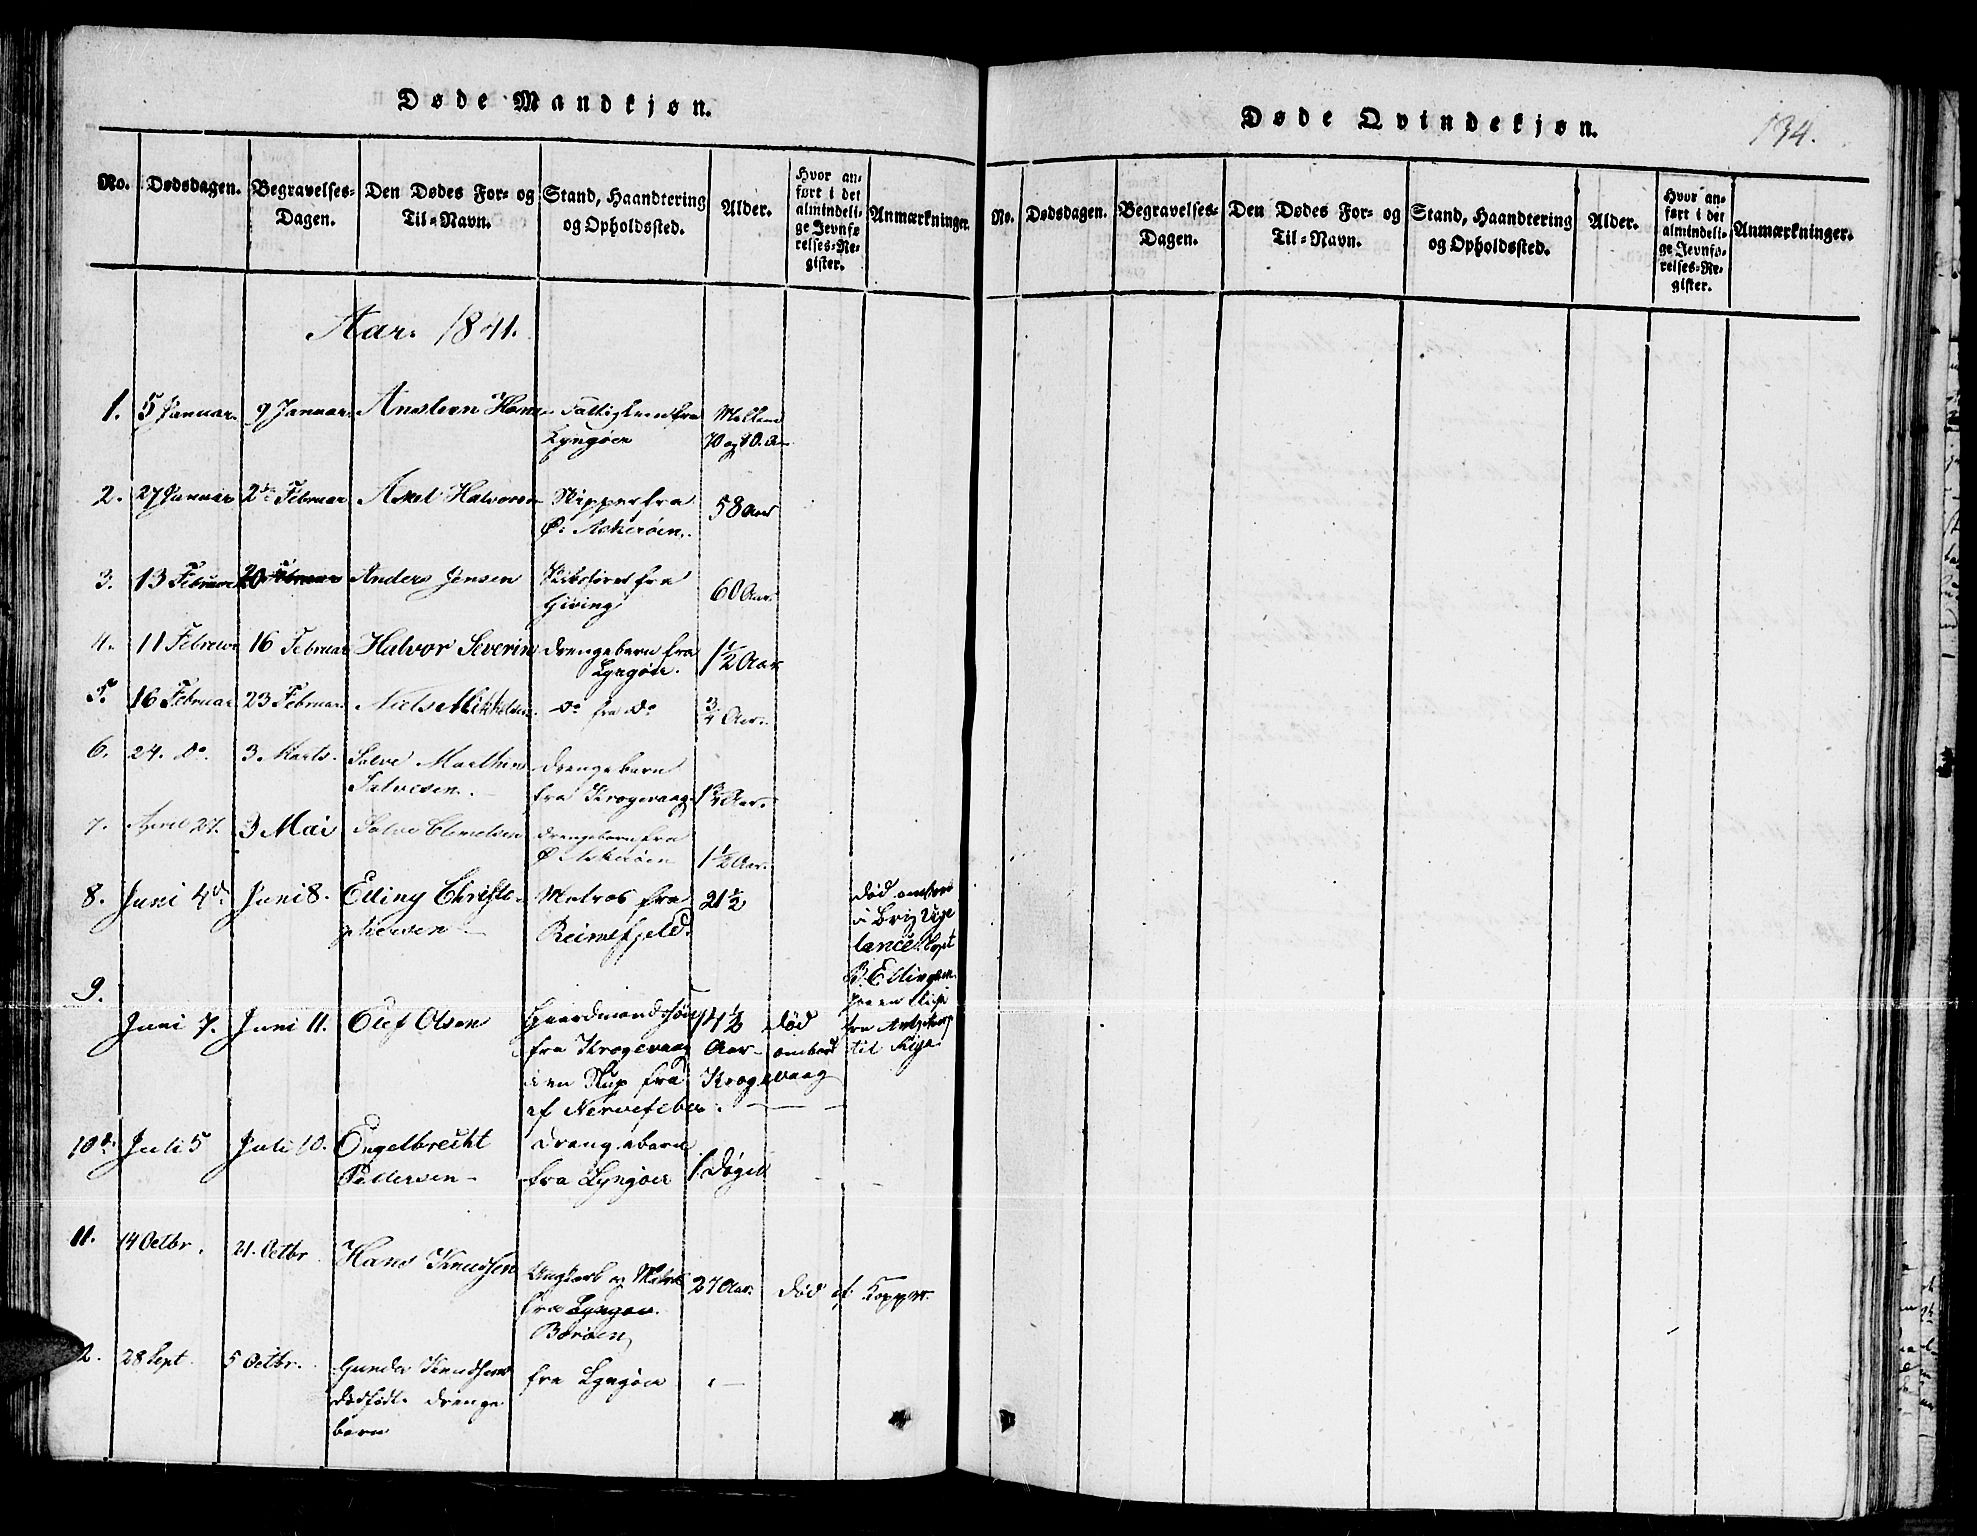 Døde Mandkjøn.
No. Dødsdagen. Begravelses-Dagen. Den Dødes For- og Til-Navn. Stand, Haandtering og Opholdssted. Alder. Hvor anført i det almindelige Jevnførelses-Register. Anmærkninger.
Aar 1841.
1. 5 Januar 9 Januar Fattiglem fra Lyngøer Mellem 70 og 80 A
2. 27 Januar 2 Februar Axel Halvorsen Skipper fra Ø. Askerøen 58 Aar
3. 13 Februar 20 Februar Anders Jensen fra Giving 60 Aar
4. 11 Februar 16 Februar Halvor Severin Drengebarn fra Lyngøer. 1½ Aar
5. 16 Februar 23 Februar Niels Mikkelsen Do fra Do ¾ Aar
6. 24. Do. 3 Marts. Salve Marthin Salvesen. Drengebarn fra Krogevaag 1¾ Aar.
7. April 27. 3 Mai Salve Drengebarn fra Ø. Askerøen 1½ Aar.
8. Juni 4d Juni 8. Elling Christophersen Matros fra Reimsfjeld. 21½
Død ombord i Brig Capt B. Ellingsen paa en Reise fra til Riga
9. Juni 7. Juni 11. Olef Olsen Gaardmandssøn fra Krogevaag 14½ Aar Død ombord i en Slup fra Krogevaag af Nervefeber
10d. Juli 5 Juli 10. Engelbrecht Pedersen Drengebarn fra Lyngøer 1. Døgn
11. 14 Octbr. 21. Octbr Hans Knudsen Ungkarl og Matros fra Lyngøer Borøen 27 Aar. Død af Kopper.
2. 28 Sept. 5 Octbr. Gunder Knudsens dødfødte Drengebarn fra Lyngøer
Døde Qvindekjøn.
134.
No. Dødsdagen. Begravelses-Dagen. Den Dødes For- og Til-Navn. Stand, Haandtering og Opholdssted. Alder. Hvor anført i det almindelige Jevnførelses-Register. Anmærkninger.